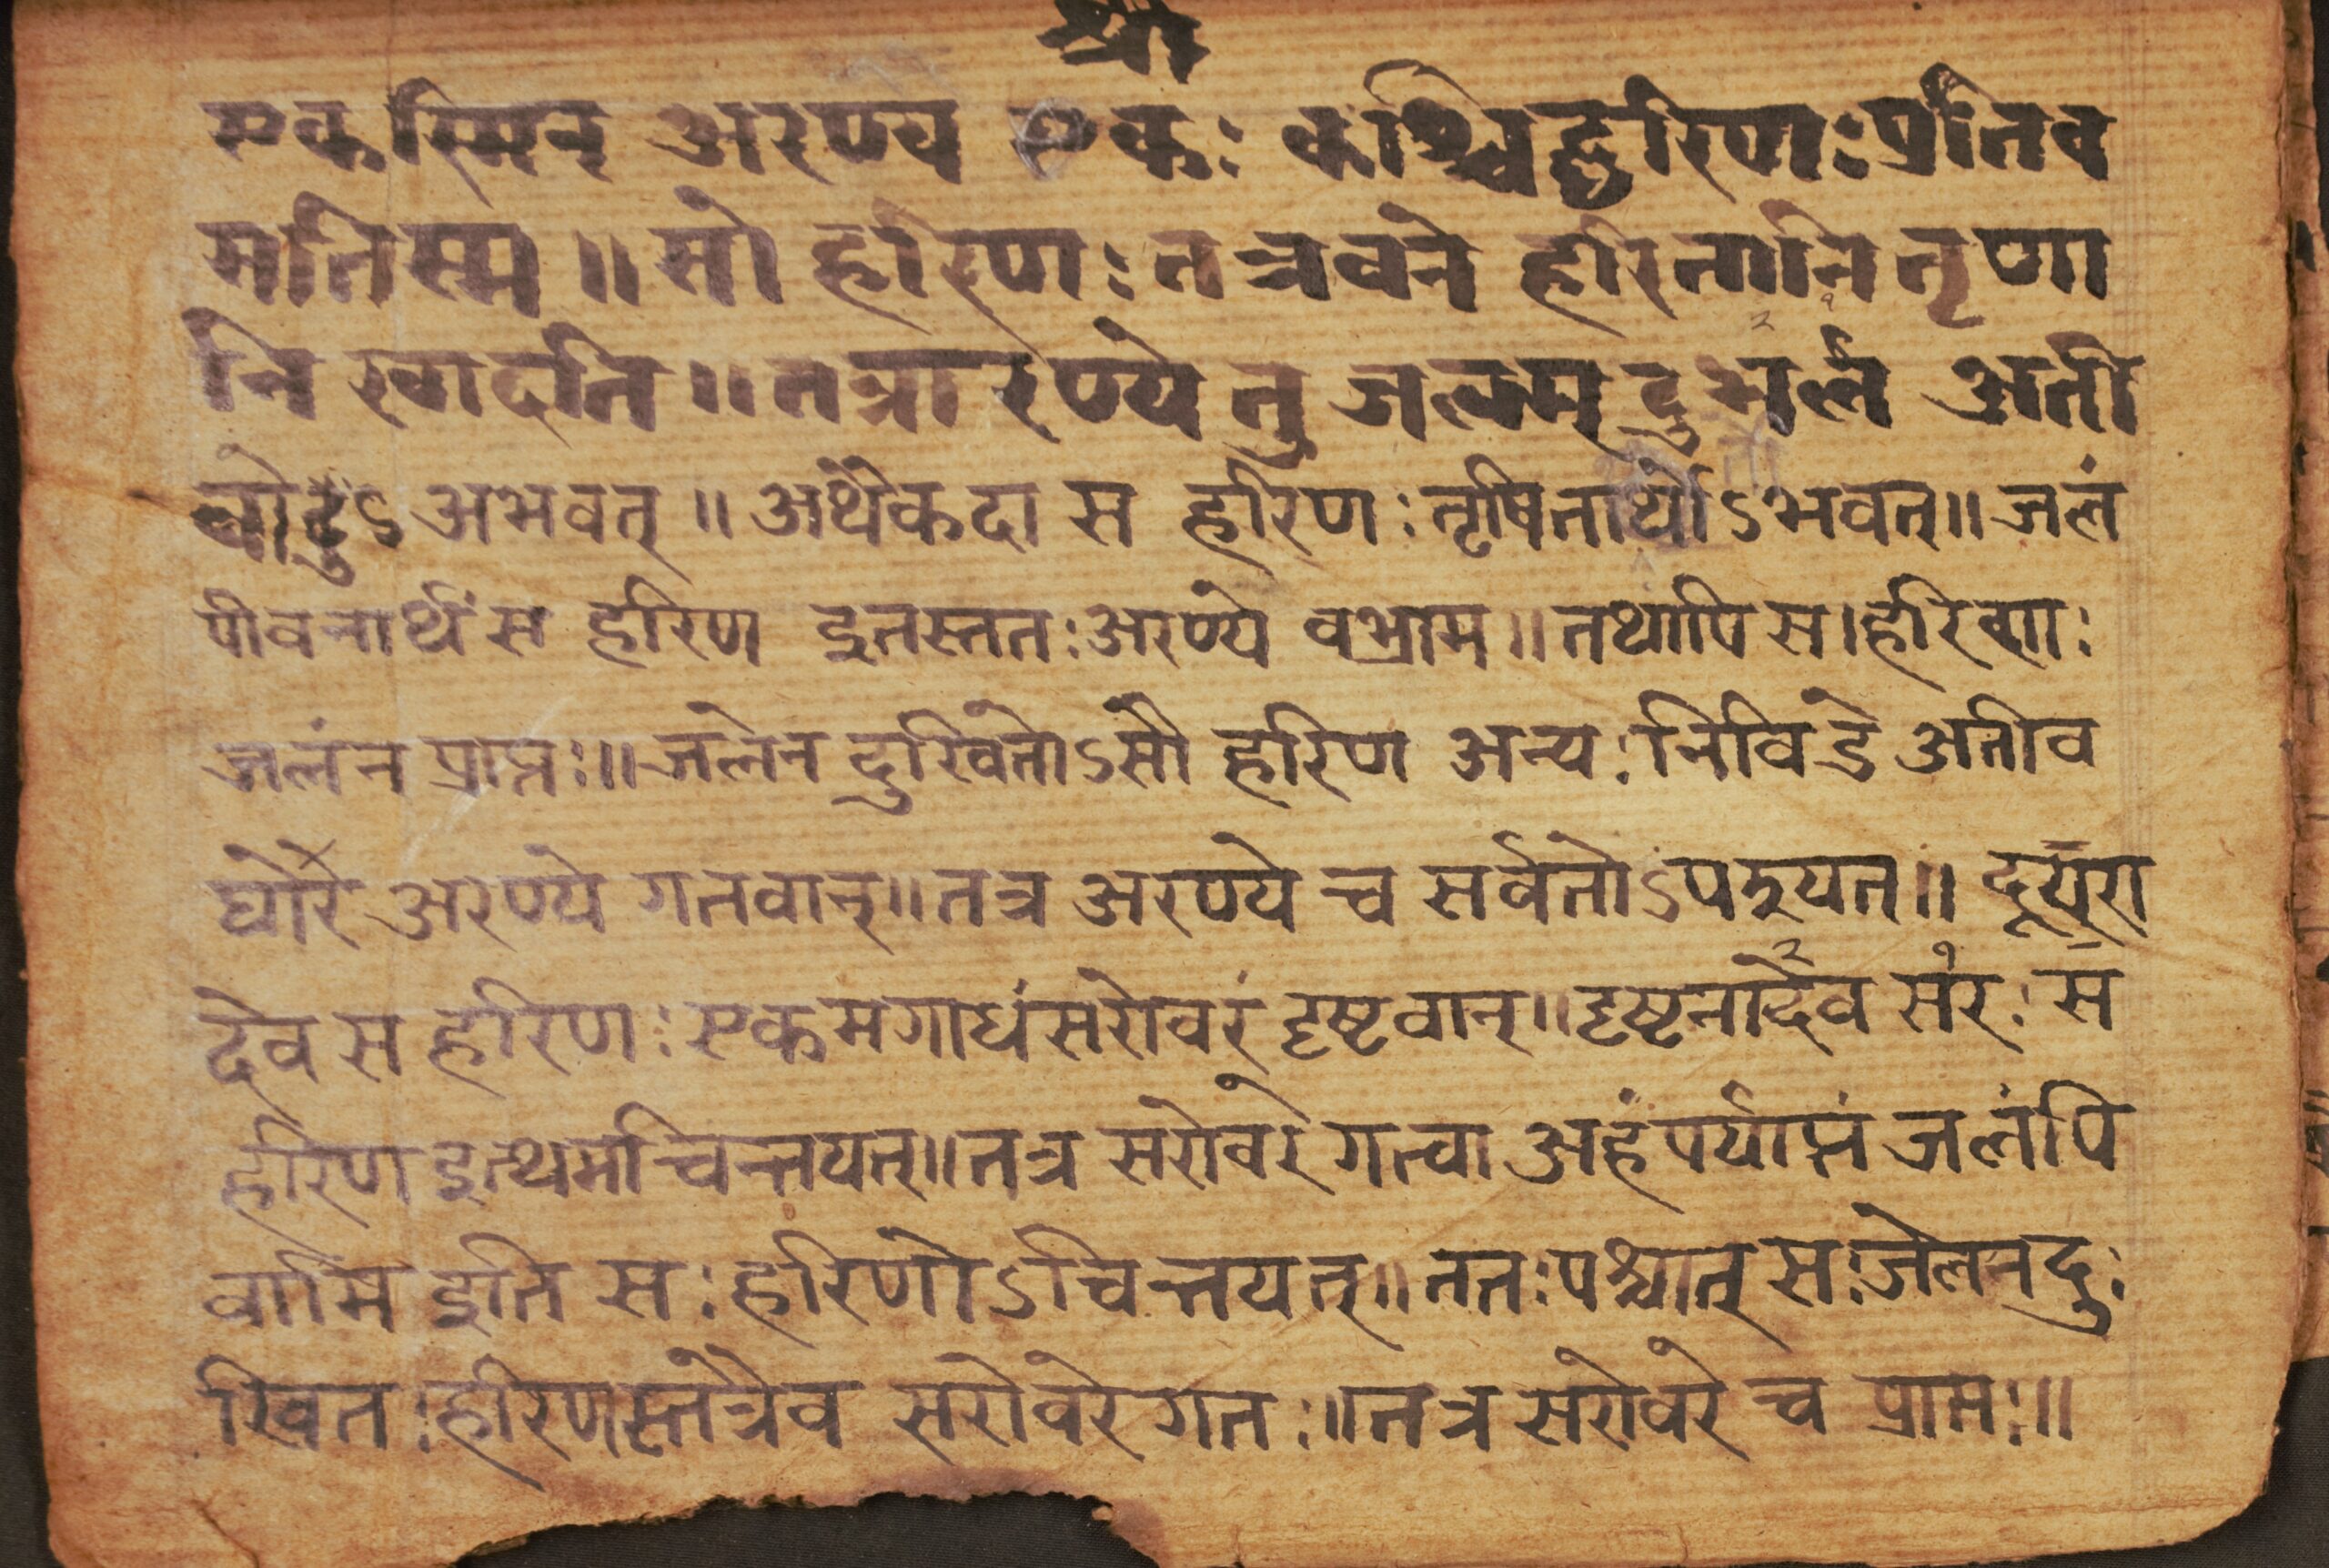 श्री
एकस्मिन् अरण्य एकः कश्चिद्धरिणः प्रतिव
सतिस्म ॥ सो हरिणः तत्रवने हरितानि तृणा
नि खादति ॥ तत्रारण्ये तु जलम् दुर्भलं अती
अभवत् ॥ अथैकदा स हरिणः तृषितार्थोऽभवत् ॥ जलं
पीवनार्थं स हरिण इतस्ततः अरण्ये वभ्राम ॥ तथापि स । हरिणाः
जलं न प्राप्तः ॥ जलेन दुखितोऽसौ हरिण अन्यः निविडे अतीव
घोरे अरण्ये गतवान् ॥ तत्र अरण्ये च सर्वतोऽपश्यत् ॥
देव स हरिणः एकमगाधं सरोवरं दृष्टवान् ॥ दृष्टनादेव सरः स
हरिण इत्थमचिन्तयत् ॥ तत्र सरोवरे गत्वा अहं पर्याप्तं जलं पि
वामि इति सः हरिणोऽचिन्तयत् ॥ ततः पश्चात् सः जलेन दुः
खितः हरिणस्तत्रैव सरोवरे गतः ॥ तत्र सरोवरे च प्राप्तः ॥